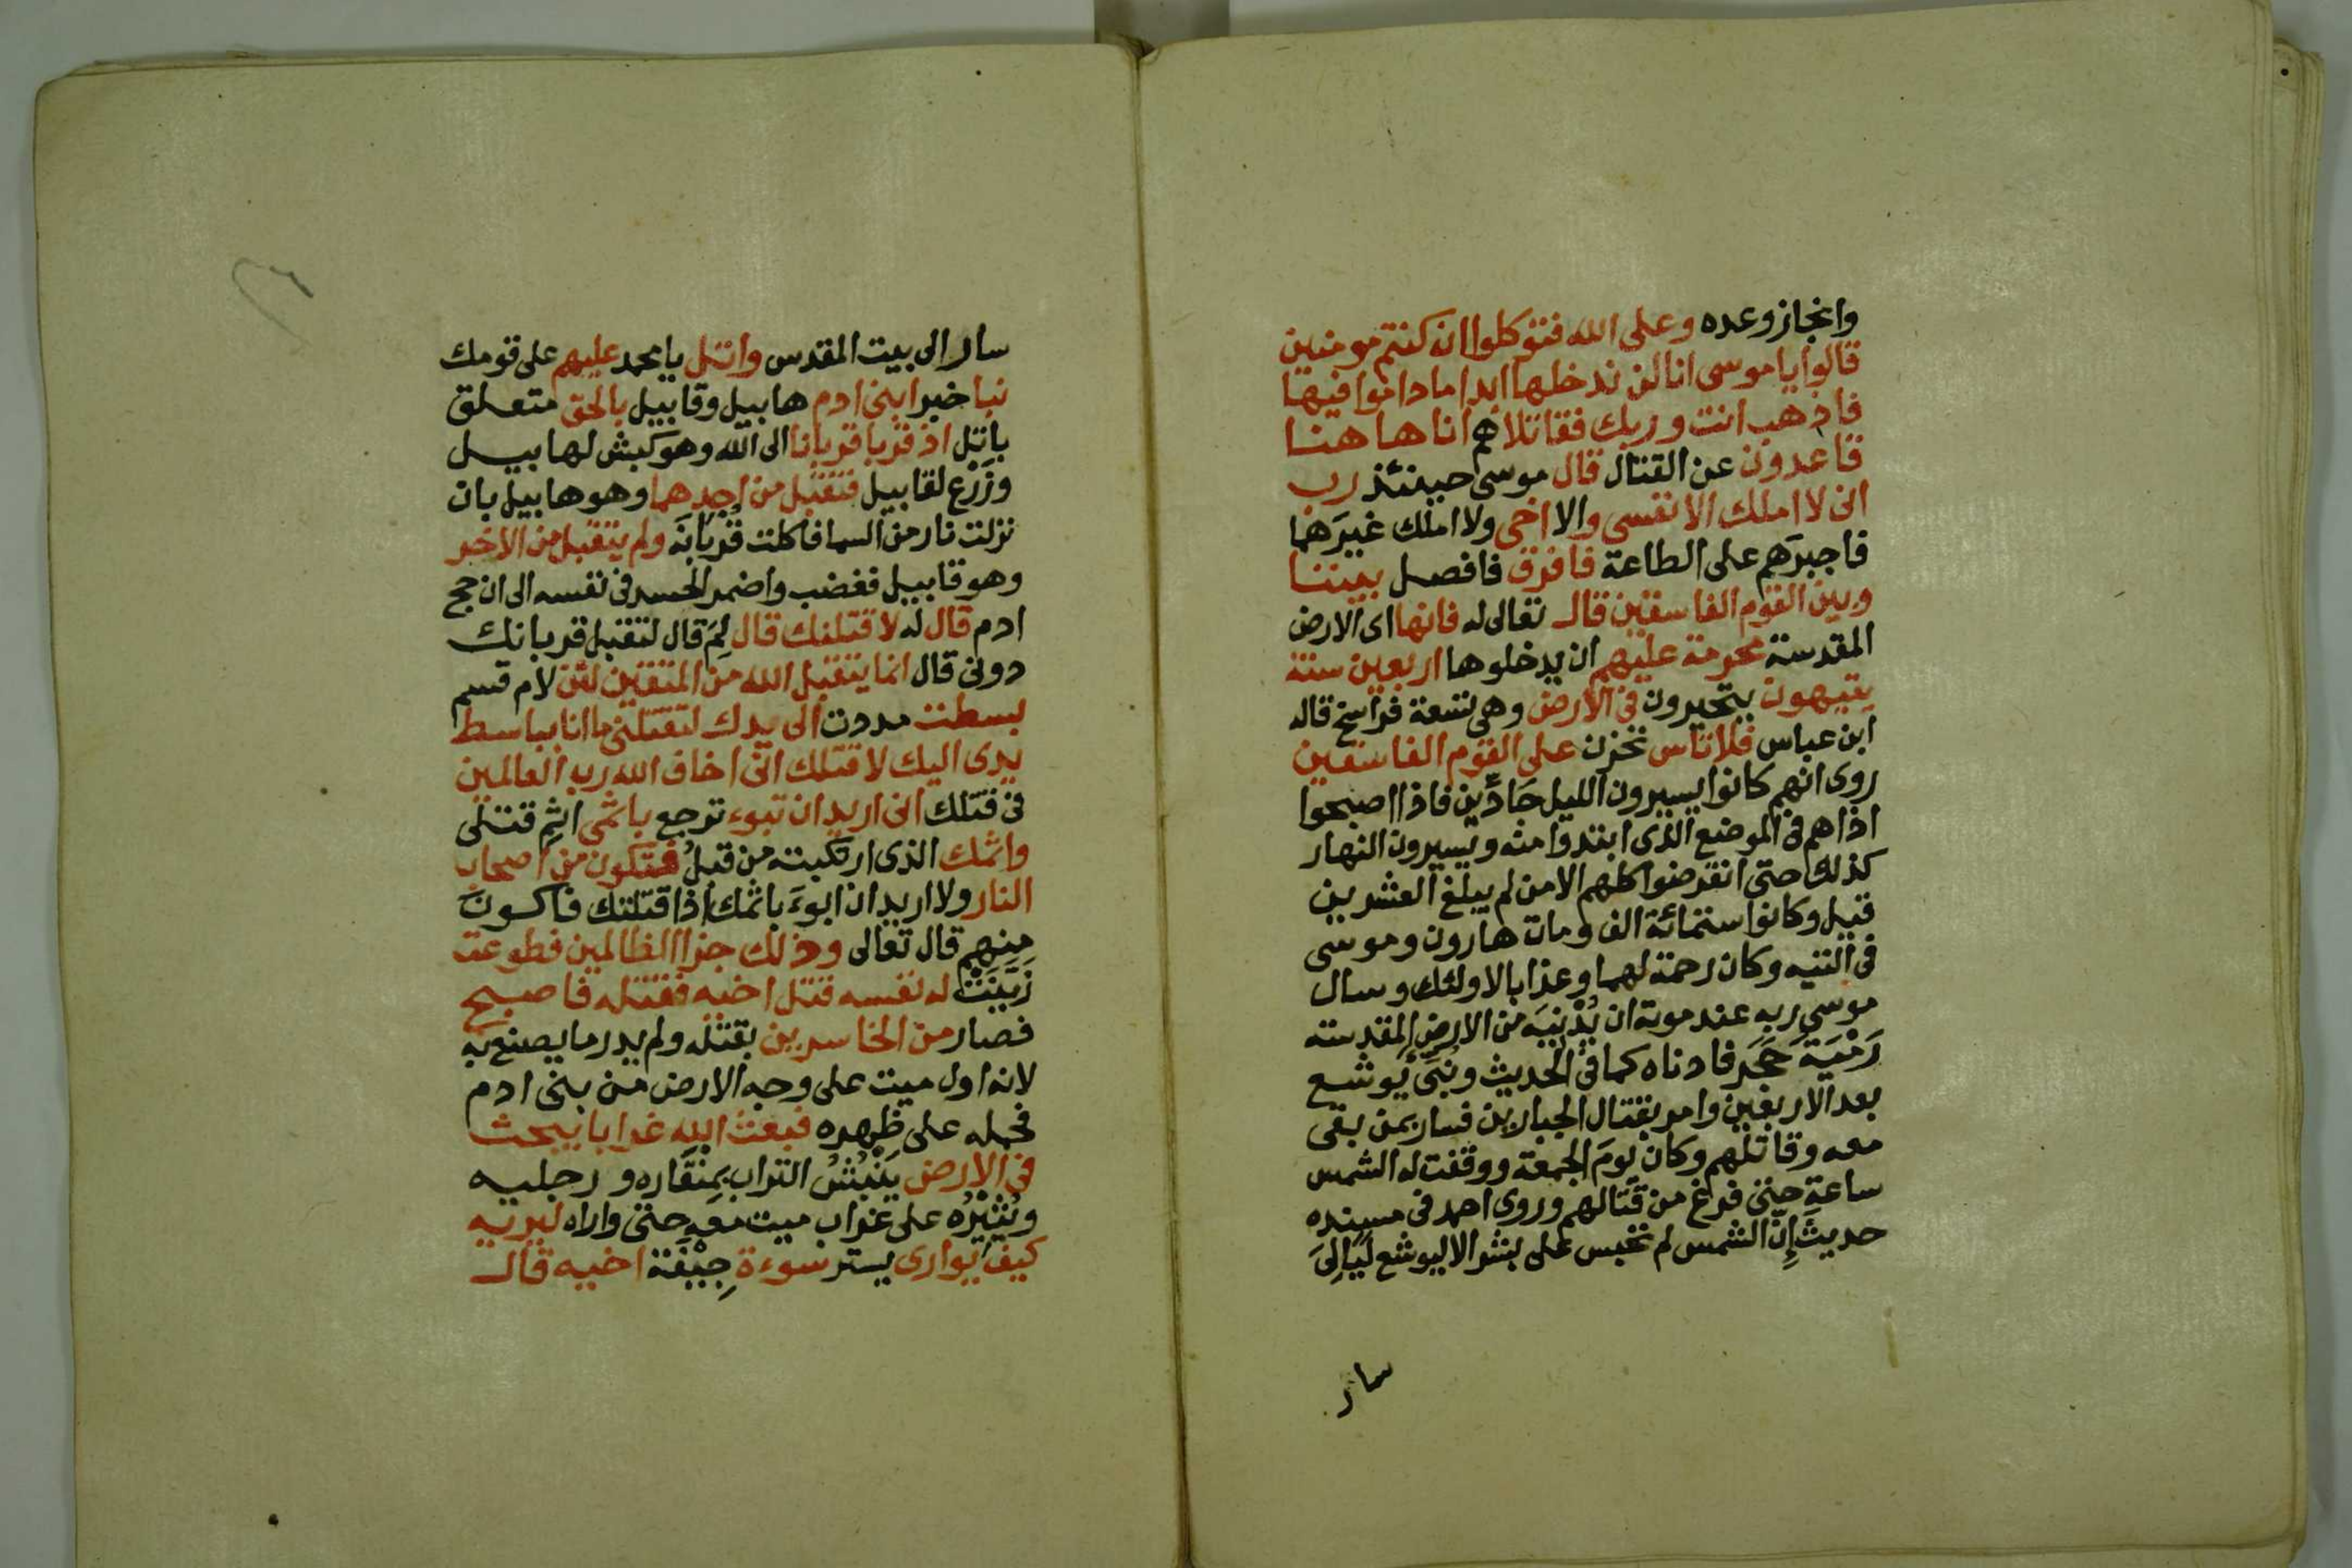 وانجاز وعده وعلى الله فتوكلوا ان كنتم مومنين
قالوا يا موسى انا لن ندخلها ابدا ما داموا فيها
فاذهب انت وربك فقاتلا هم انا هاهنا
قاعدون عن القتال قال موسى حينئذ رب
انى لا املك الا نفسى والا اخى ولا املك غيرَهما
فاجبرَهم على الطاعة فافرق فافصل بيننا
وبين القوم الفاسقين قال تعالى له فانها اى الارض
المقدسة محرمة عليهم ان يدخلوها اربعين سنة
يتيهون يتحيرون فى الارض وهى تسعة فراسخ قاله
ابن عباس فلا تاس تحزن على القوم الفاسقين
روى انهم كانوا يسيرون الليل جَادِّين فاذا اصبحوا
اذا هم فى الموضع الذى ابتدوا منه ويسيرون النهار
كذلك حتى انقرضوا كلهم الا من لم يبلغ العشرين
قيل وكانوا ستمائة الف ومات هارون وموسى
فى التيه وكان رحمة لهما وعذابا لاولئك وسال
موسى ربه عند موته ان يُدْنِيَه من الارض المقدسة
رَمْيَةَ حَجَر فادناه كما فى الحديث ونُبِّىَ يوشع
بعد الاربعين وامر بقتال الجبارين فسار بمن بقى
معه وقاتلهم وكان يومَ الجمعة ووقفت له الشمس
ساعة حتى فرغ من قتالهم وروى احمد فى مسنده
حديثَ إنَّ الشمس لم تحبس على بشر الا ليوشع لَيَالِىَ
سار
سار الى بيت المقدس واتل يا محمد عليهم على قومك
نبا خبر ابنى ادم هابيل وقابيل بالحق متعلق
باتل اذ قربا قربانا الى الله وهو كبش لهابيل
وزَرْع لقابيل فتقبل من احدهما وهو هابيل بان
نزلت نار من السما فاكلت قُرْبَانَه ولم يتقبل من الاخر
وهو قابيل فغضب واضمر الحسد فى نفسه الى ان حج
ادم قال له لاقتلنك قال لِمَ قال لتقبل قربانك
دونى قال انما يتقبل الله من المتقين لئن لام قسم
بسطت مددت الى يدك لتقتلنى ما انا بباسط
يدى اليك لاقتلك انى اخاف الله رب العالمين
فى قتلك انى اريد ان تبوء ترجع باثمى اثم قتلى
واثمك الذى ارتكبته من قبلُ فتكون من اصحاب
النار ولا اريد ان ابوءَ باثمك اذا قتلتك فاكون
منهم قال تعالى وذلك جزا الظالمين فطوعت
زَيَّنَتْ له نفسه قتل اخيه فقتله فاصبح
فصار من الخاسرين بقتله ولم يدر ما يصنع به
لانه اول ميت على وجه الارض من بنى ادم
فحمله على ظهره فبعث الله غرابا يبحث
فى الارض يَنْبُشُ التراب بِمِنْقَاره ورجليه
ويُثيْرُه على غراب ميت معه حتى واراه ليريه
كيف يوارى يستر سوءة جِيْفَة اخيه قال